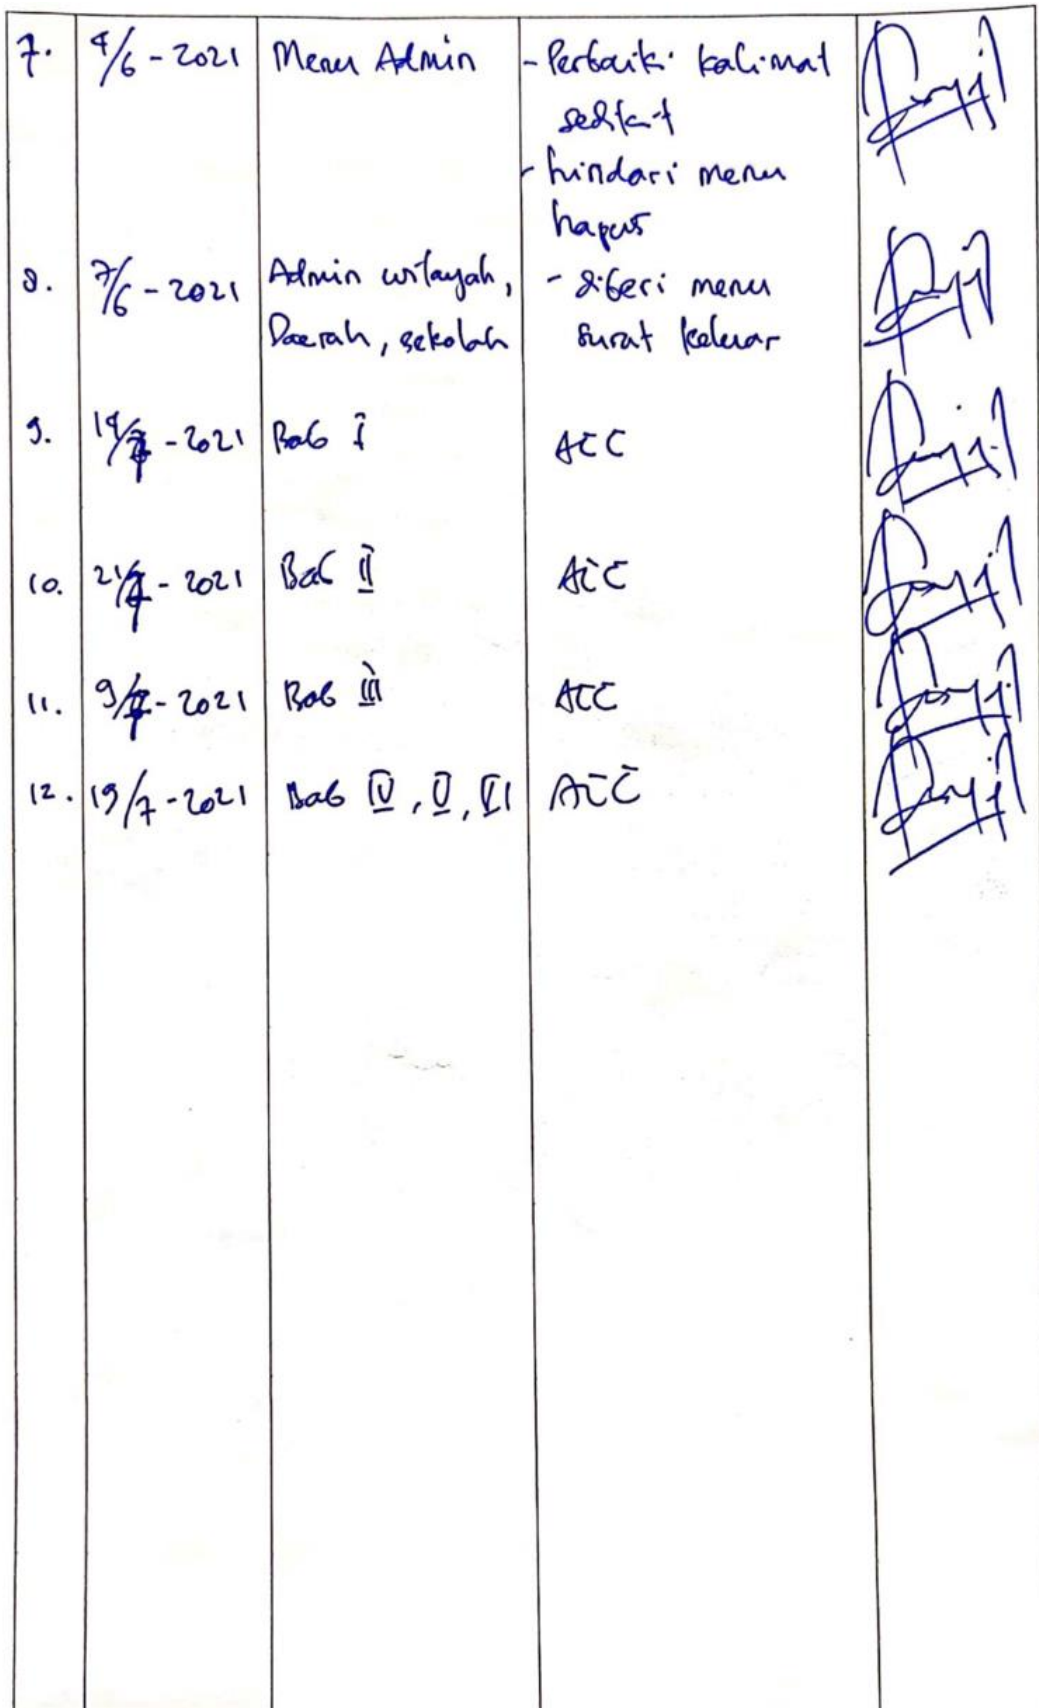 7. 4/6 - 2021 Menu Admin - Perbaiki kalimat
sedikit
- hindari menu
hapus
8. 7/6 - 2021 Admin wilayah, - diberi menu
Daerah, sekolah surat keluar
9. 14/7 - 2021 Bab I ACC
10. 21/7 - 2021 Bab II ACC
11. 9/7 - 2021 Bab III ACC
12. 19/7 - 2021 Bab IV, V, VI ACC